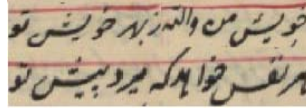 خویش من والله ز بهر خویش تو
هر نفس خواهد که میرد پیش تو